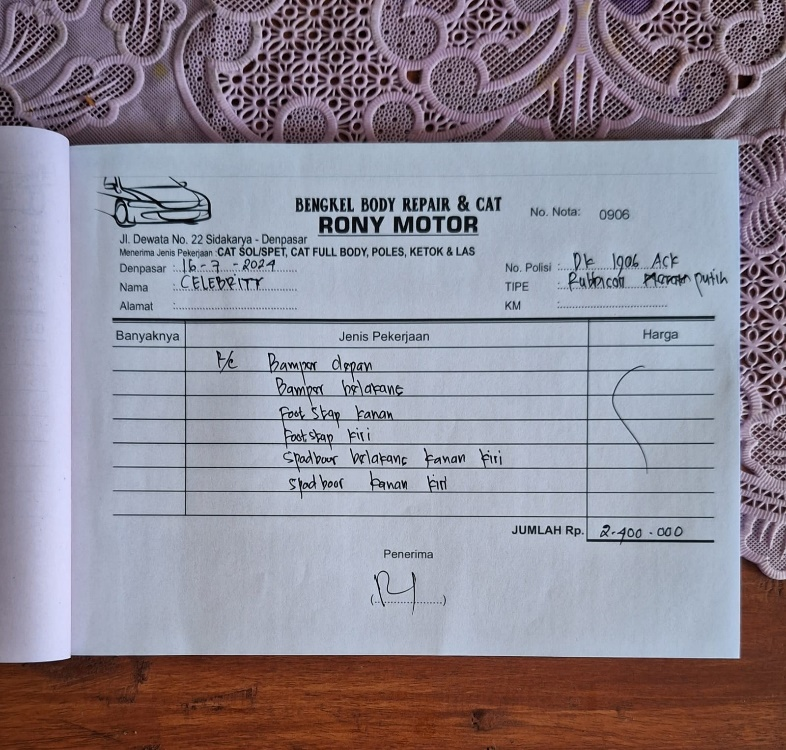 BENGKEL BODY REPAIR & CAT
RONY MOTOR
No. Nota: 0906
Jl. Dewata No. 22 Sidakarya - Denpasar
Menerima Jenis Pekerjaan : CAT SOL/SPET, CAT FULL BODY, POLES, KETOK & LAS
Denpasar : 16-7-2024
No. Polisi : DK 1906 ACK
Nama : CELEBRITY
TIPE : Rubbicon putih
Alamat :
KM :
Banyaknya Jenis Pekerjaan Harga
R/C Bamper depan
Bamper belakang
Foot Stap kanan
Footstap kiri
Spadboor belakang kanan kiri
Spadboor kanan kiri
JUMLAH Rp. 2.400.000
Penerima
(..................)